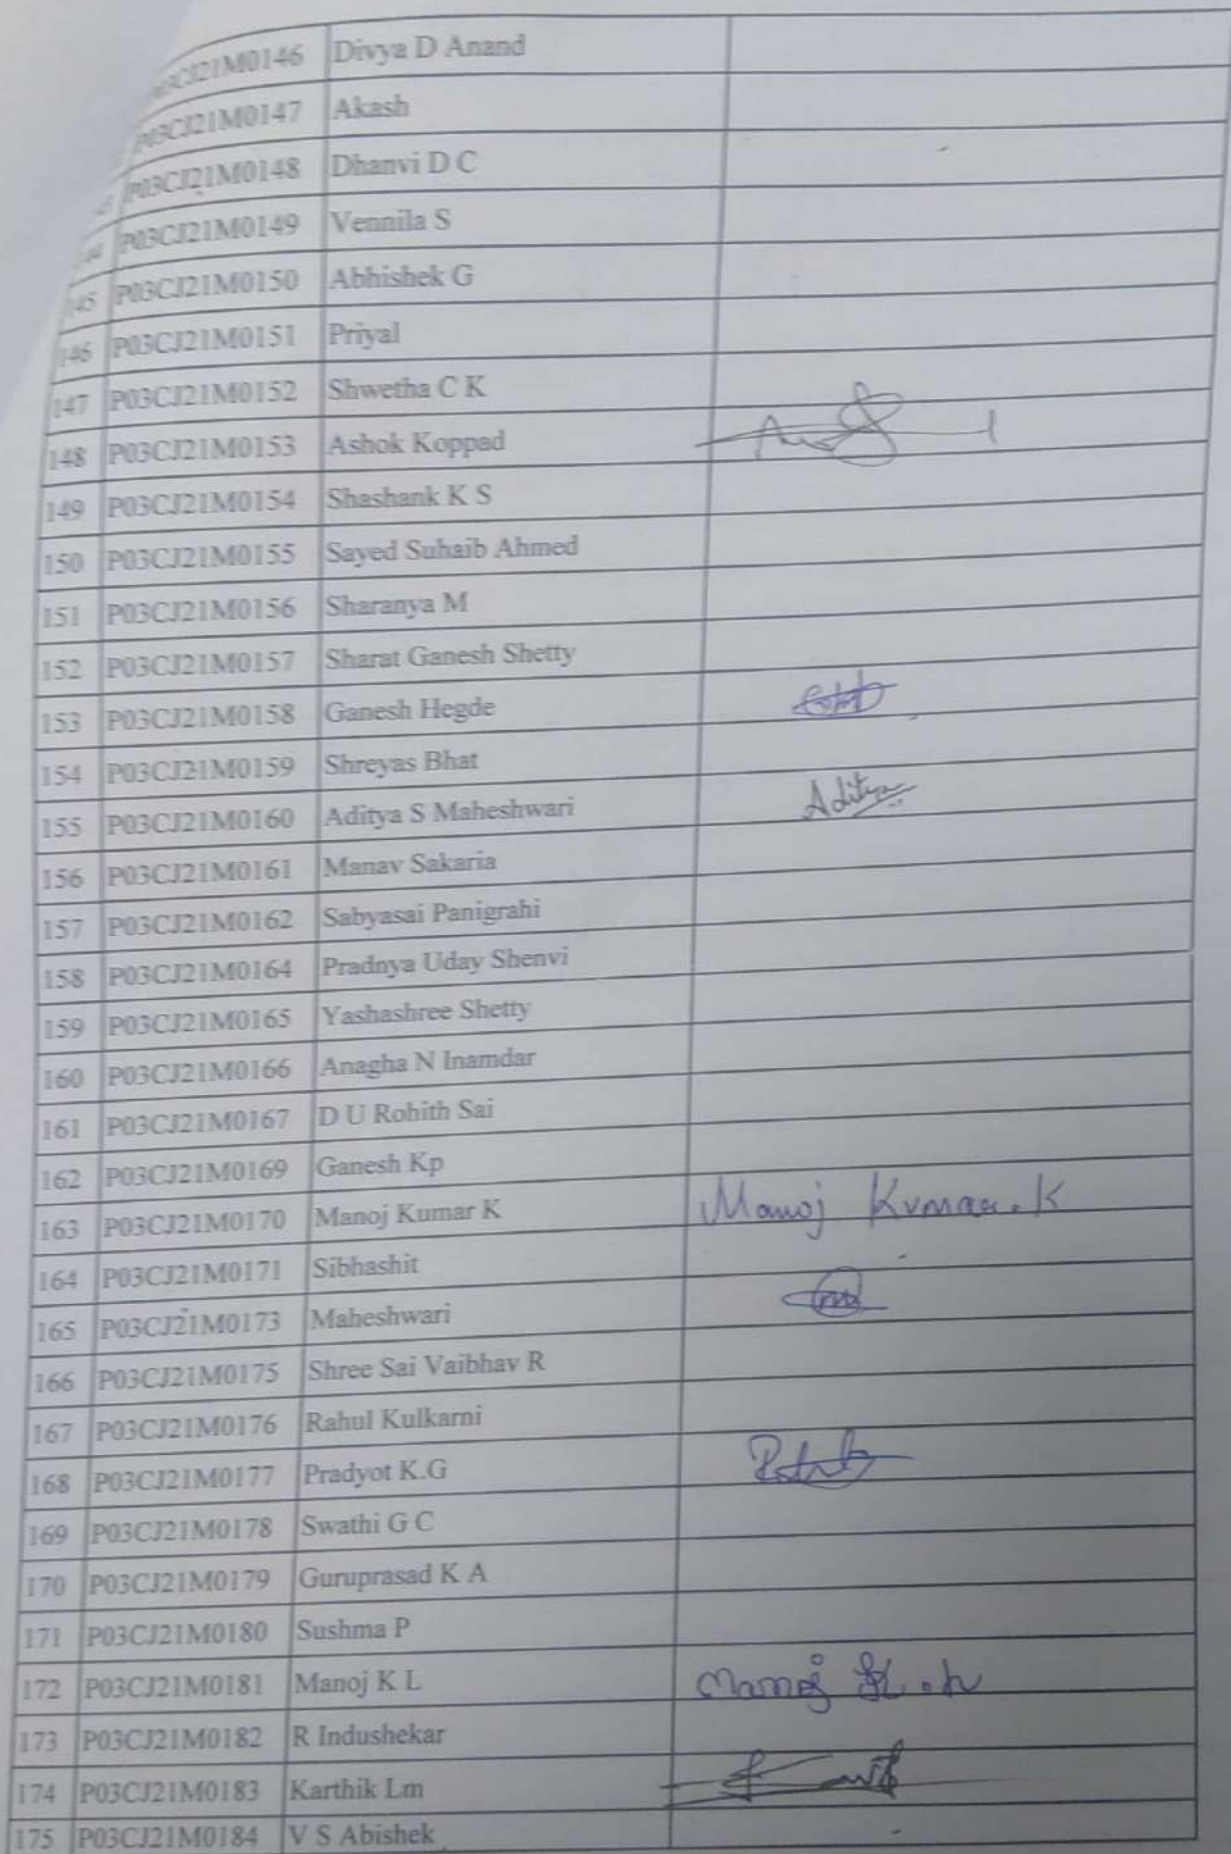 P03CJ21M0146 Divya D Anand
P03CJ21M0147 Akash
P03CJ21M0148 Dhanvi D C
144 P03CJ21M0149 Vennila S
145 P03CJ21M0150 Abhishek G
146 P03CJ21M0151 Priyal
147 P03CJ21M0152 Shwetha C K
148 P03CJ21M0153 Ashok Koppad
149 P03CJ21M0154 Shashank K S
150 P03CJ21M0155 Sayed Suhaib Ahmed
151 P03CJ21M0156 Sharanya M
152 P03CJ21M0157 Sharat Ganesh Shetty
153 P03CJ21M0158 Ganesh Hegde
154 P03CJ21M0159 Shreyas Bhat
155 P03CJ21M0160 Aditya S Maheshwari Aditya
156 P03CJ21M0161 Manav Sakaria
157 P03CJ21M0162 Sabyasai Panigrahi
158 P03CJ21M0164 Pradnya Uday Shenvi
159 P03CJ21M0165 Yashashree Shetty
160 P03CJ21M0166 Anagha N Inamdar
161 P03CJ21M0167 D U Rohith Sai
162 P03CJ21M0169 Ganesh Kp
163 P03CJ21M0170 Manoj Kumar K Manoj Kumar.K
164 P03CJ21M0171 Sibhashit
165 P03CJ21M0173 Maheshwari
166 P03CJ21M0175 Shree Sai Vaibhav R
167 P03CJ21M0176 Rahul Kulkarni
168 P03CJ21M0177 Pradyot K.G
169 P03CJ21M0178 Swathi G C
170 P03CJ21M0179 Guruprasad K A
171 P03CJ21M0180 Sushma P
172 P03CJ21M0181 Manoj K L Manoj
173 P03CJ21M0182 R Indushekar
174 P03CJ21M0183 Karthik Lm
175 P03CJ21M0184 V S Abishek